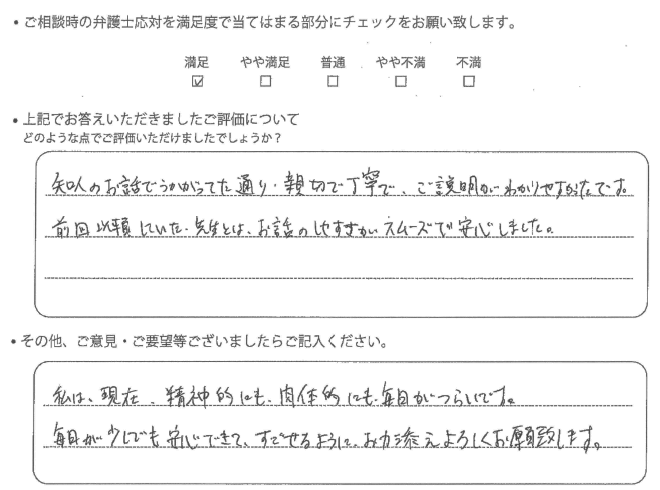 ・ご相談時の弁護士応対を満足度で当てはまる部分にチェックをお願い致します。
満足 やや満足 普通 やや不満 不満
・上記でお答えいただきましたご評価について
どのような点でご評価いただけましたでしょうか？
知人のお話でうかがってた通り、親切で丁寧で、ご説明がわかりやすかたです。
前回依頼していた、先生とは、お話のしやすさがスムーズで安心しました。
・その他、ご意見・ご要望等ございましたらご記入ください。
私は、現在、精神的にも、肉体的にも、毎日がつらいです。
毎日が少しでも安心できて、すごせるように、お力添えよろしくお願い致します。